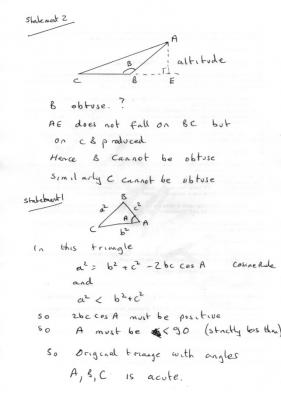 Statement 2
A
altitude
B
C B E
B obtuse. ?
AE does not fall on BC but
on CB produced
Hence B cannot be obtuse
Similarly C cannot be obtuse
Statement 1
B
a² c²
A A
C b²
In this triangle
a² = b² + c² - 2bc cos A Cosine Rule
and
a² < b² + c²
so 2bc cos A must be positive
so A must be < 90 (strictly less than)
So Original triange with angles
A, B, C is acute.